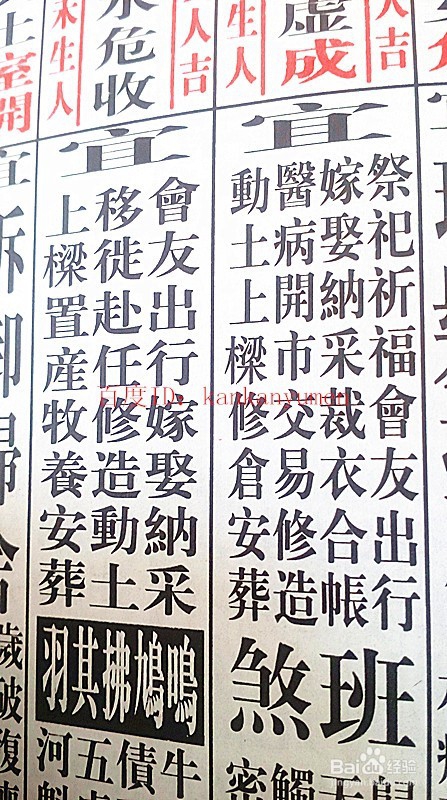 人吉
虛成
生人
人吉
危收
木生人
土室開
宜
祭祀祈福會友出行
嫁娶納采裁衣合帳
醫病開市交易修造
動土上樑修倉安葬
班煞
觸
密
宜
會友出行嫁娶納采
移徙赴任修造動土
上樑置產牧養安葬
鳴鳩拂其羽
牛
債
五
河魁
宜
拆卸掃舍
歲破復
百度ID：kankanyumen
Baidu 经验